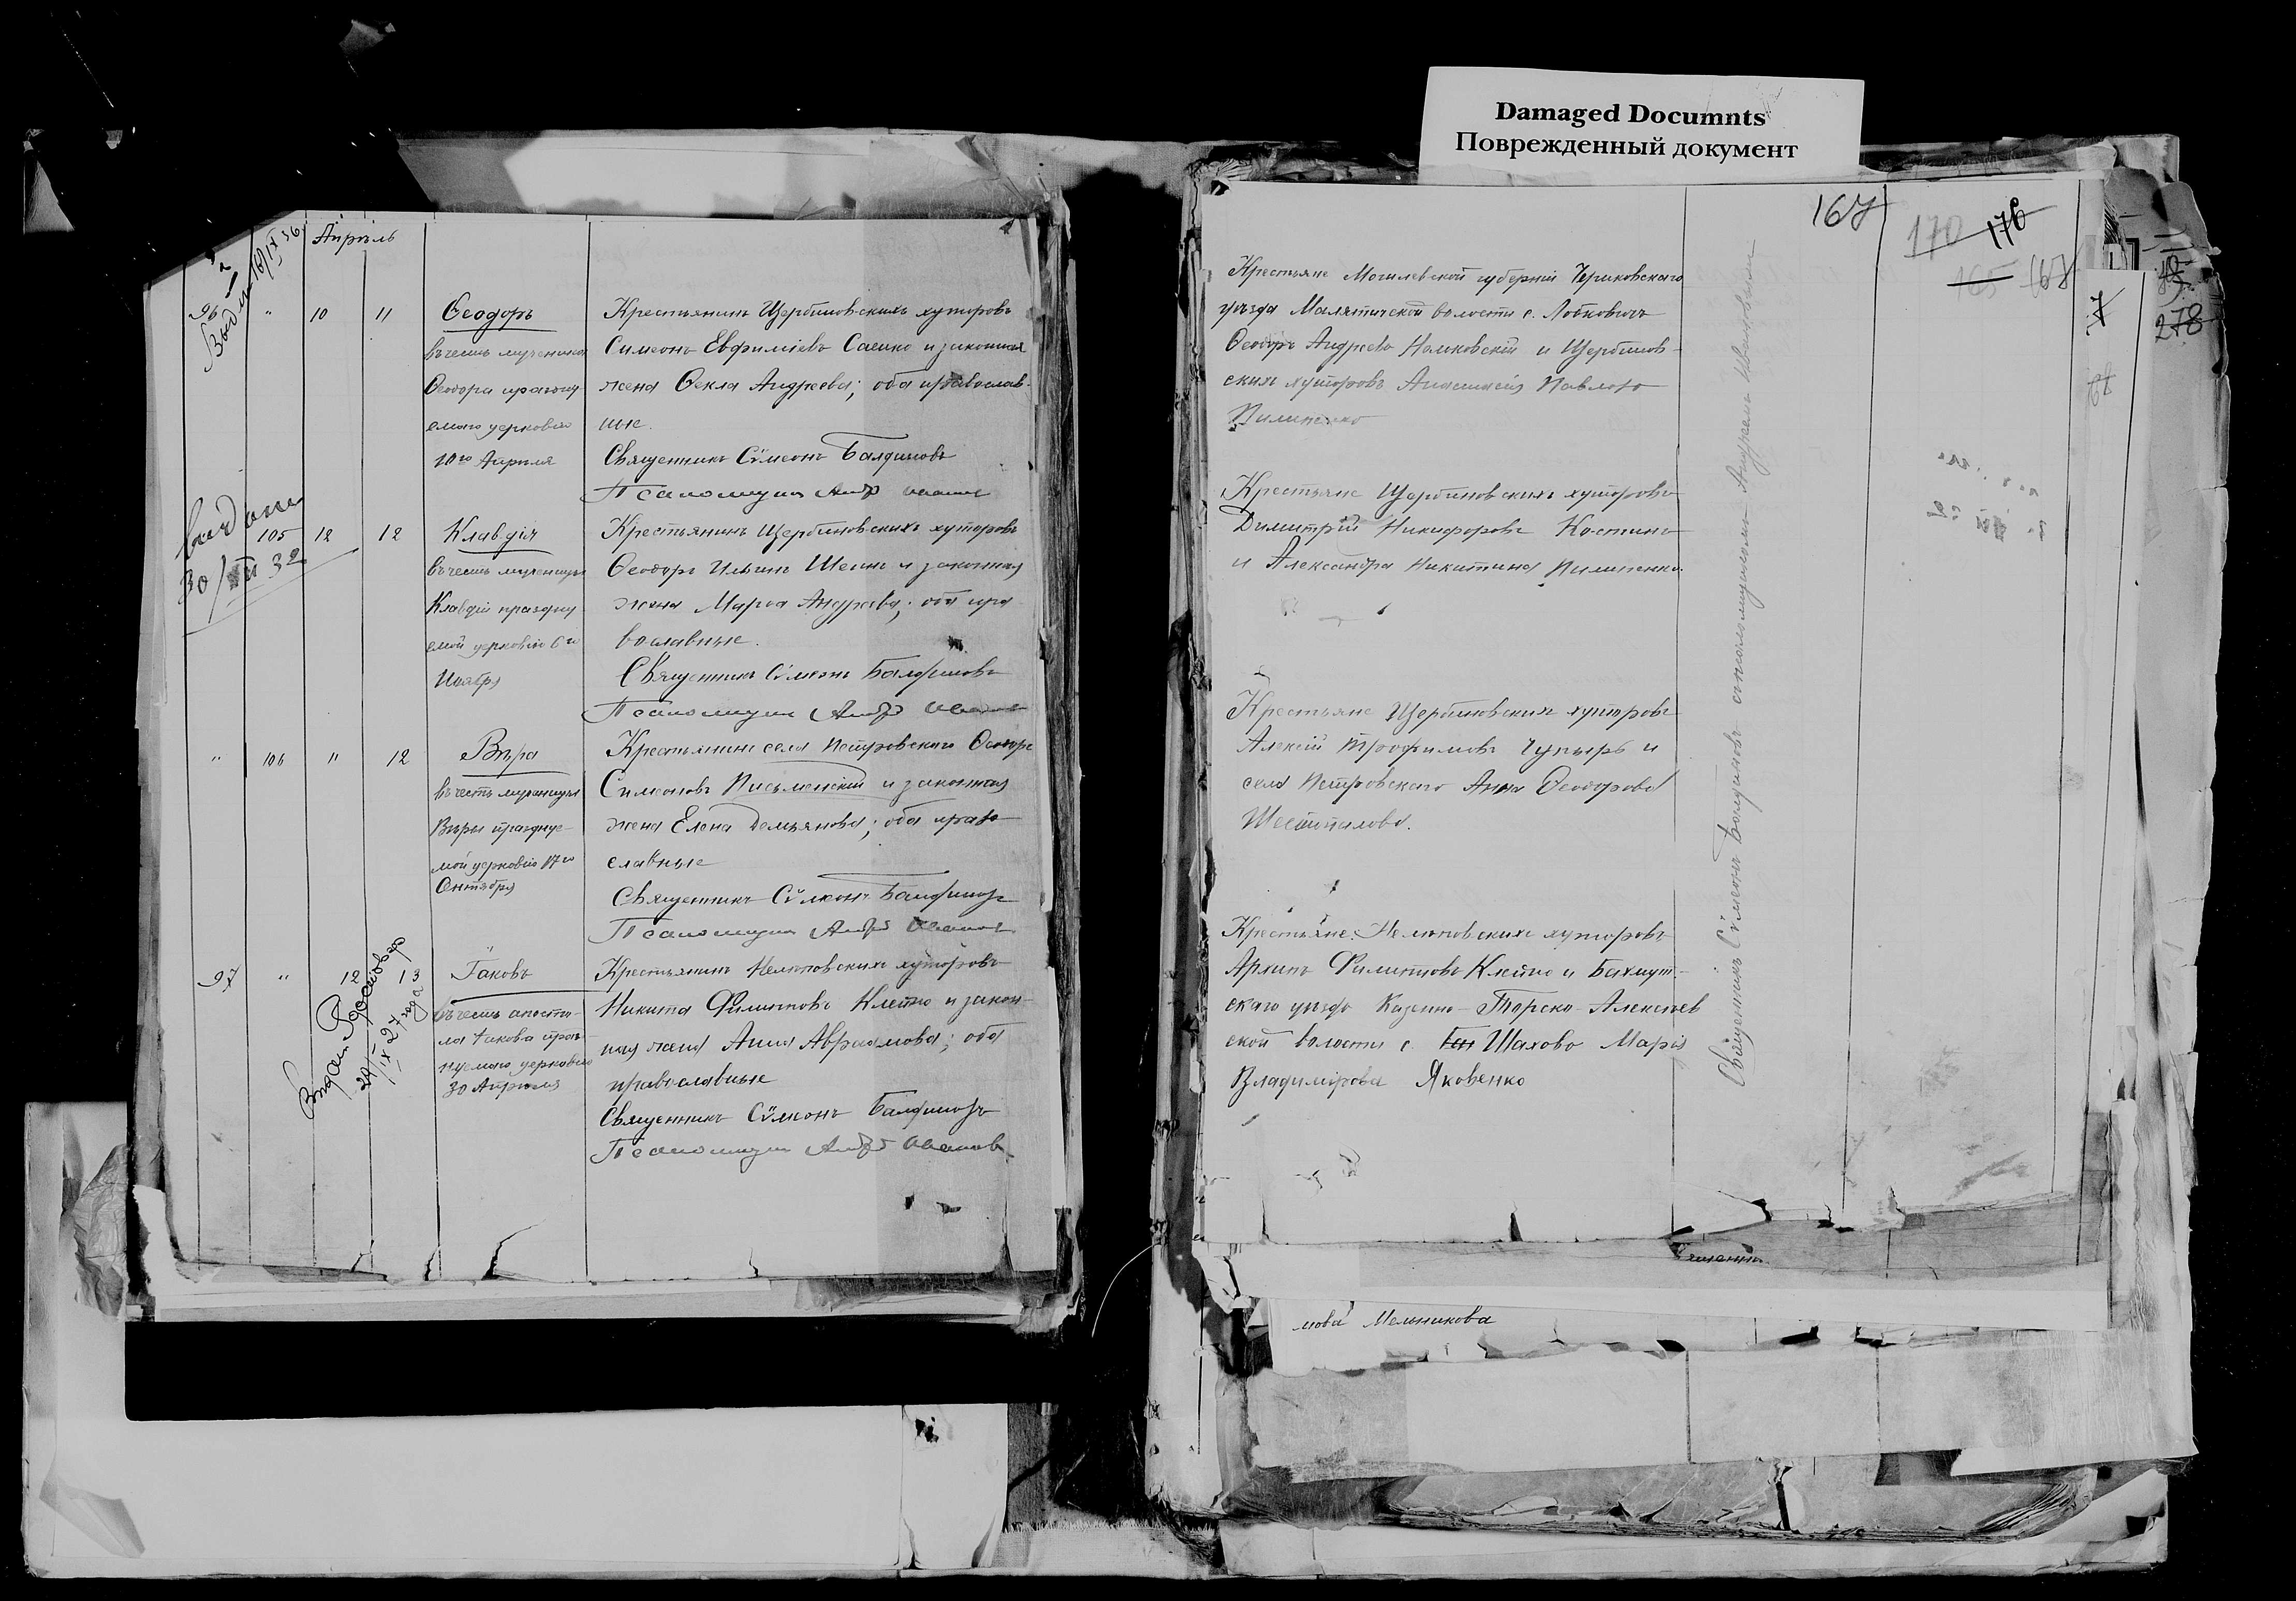 Damaged Documnts
Поврежденный документ
Апрѣль
96 " 10 11 Ѳеодоръ
въ честь мученика
Ѳеодора праздну
емаго церковію
10го Апрѣля
Крестьянинъ Щербиновскихъ хуторовъ
Симеонъ Евфиміевъ Саенко и законная
жена Ѳекла Андреева; оба православ-
ные.
Священникъ Сѵмеонъ Балдиновъ
Псаломщикъ Андр Иванов
выдано
30/ 32
105 12 12 Клавдія
въ честь мученицы
Клавдіи праздну
емой церковію 6го
Ноября
Крестьянинъ Щербиновскихъ хуторовъ
Ѳеодоръ Ильинъ и законная
жена Марѳа Андреева; оба пра
вославные.
Священникъ Сѵмеонъ Балдиновъ
Псаломщикъ Андр Иванов
" 106 " 12 Вѣра
въ честь мученицы
Вѣры празднуе-
мой церковію 17го
Сентября
Крестьянинъ села Петровскаго Ѳеодоръ
Симеоновъ Письменскій и законная
жена Елена Демьянова; оба право
славные
Священникъ Сѵмеонъ Балдиновъ
Псаломщикъ Андр Иванов
97 " 12 13 Іаковъ
въ честь апосто-
ла Іакова празд
нуемаго церковію
30 Апрѣля
Крестьянинъ Нелѣповскихъ хуторовъ
Никита Филипповъ и закон-
ная жена Анна Авраамова; оба
православные
Священникъ Сѵмеонъ Балдиновъ
Псаломщикъ Андр Иванов
167
170 176
165 167
278
Крестьяне Могилевской губерніи Чериковскаго
уѣзда Малятичской волости с. Лобковичъ
Ѳеодоръ Андреевъ и Щербинов-
скихъ хуторовъ Анастасія Павлова
Пилипенко
Крестьяне Щербиновскихъ хуторовъ
Димитрій Никифоровъ Костинъ
и Александра Никитина Пилипенко.
Крестьяне Щербиновскихъ хуторовъ
Алексій Трофимовъ Чупырь и
села Петровскаго Анна Ѳеодорова
Шестипалова.
Крестьяне Нелѣповскихъ хуторовъ
Архипъ Филипповъ и Бахмут-
скаго уѣзда Казенно-Торско-Алексѣев
ской волости с. Шахово Марія
Владимірова Яковенко
Священникъ Сѵмеонъ Балдиновъ съ псаломщикомъ Андреемъ Ивановымъ
мова Мельникова